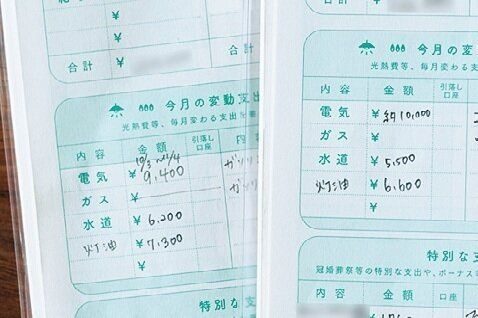 ¥
¥
合計 ¥
今月の変動支出
光熱費等、毎月変わる支出を書
内容 金額 引落し口座 内
10/3〜11/4
電気 ¥9,400 ガソリ
ガス ¥
水道 ¥6,200
灯油 ¥7,300
¥
特別な
¥
合計 ¥
今月の変
光熱費等、毎月変わる支
内容 金額 引落し口座
電気 ¥約10,000
ガス ¥
水道 ¥5,500
灯油 ¥6,600
¥
特別な支
冠婚葬祭等の特別な支出や、ボーナス
内容 金額 口座
¥